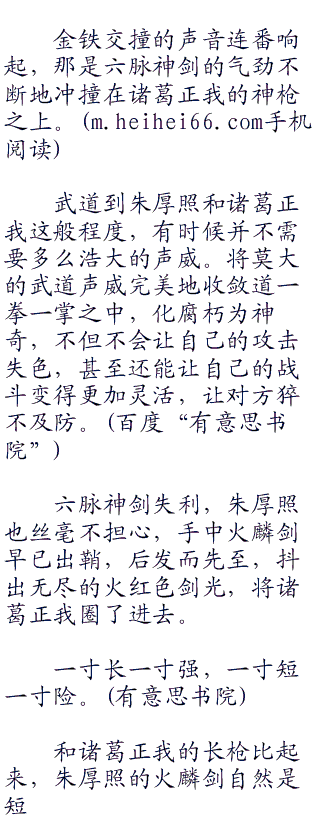 金铁交撞的声音连番响
起，那是六脉神剑的气劲不
断地冲撞在诸葛正我的神枪
之上。(m.heihei66.com手机
阅读)
武道到朱厚照和诸葛正
我这般程度，有时候并不需
要多么浩大的声威。将莫大
的武道声威完美地收敛道一
拳一掌之中，化腐朽为神
奇，不但不会让自己的攻击
失色，甚至还能让自己的战
斗变得更加灵活，让对方猝
不及防。(百度“有意思书
院”)
六脉神剑失利，朱厚照
也丝毫不担心，手中火麟剑
早已出鞘，后发而先至，抖
出无尽的火红色剑光，将诸
葛正我圈了进去。
一寸长一寸强，一寸短
一寸险。(有意思书院)
和诸葛正我的长枪比起
来，朱厚照的火麟剑自然是
短